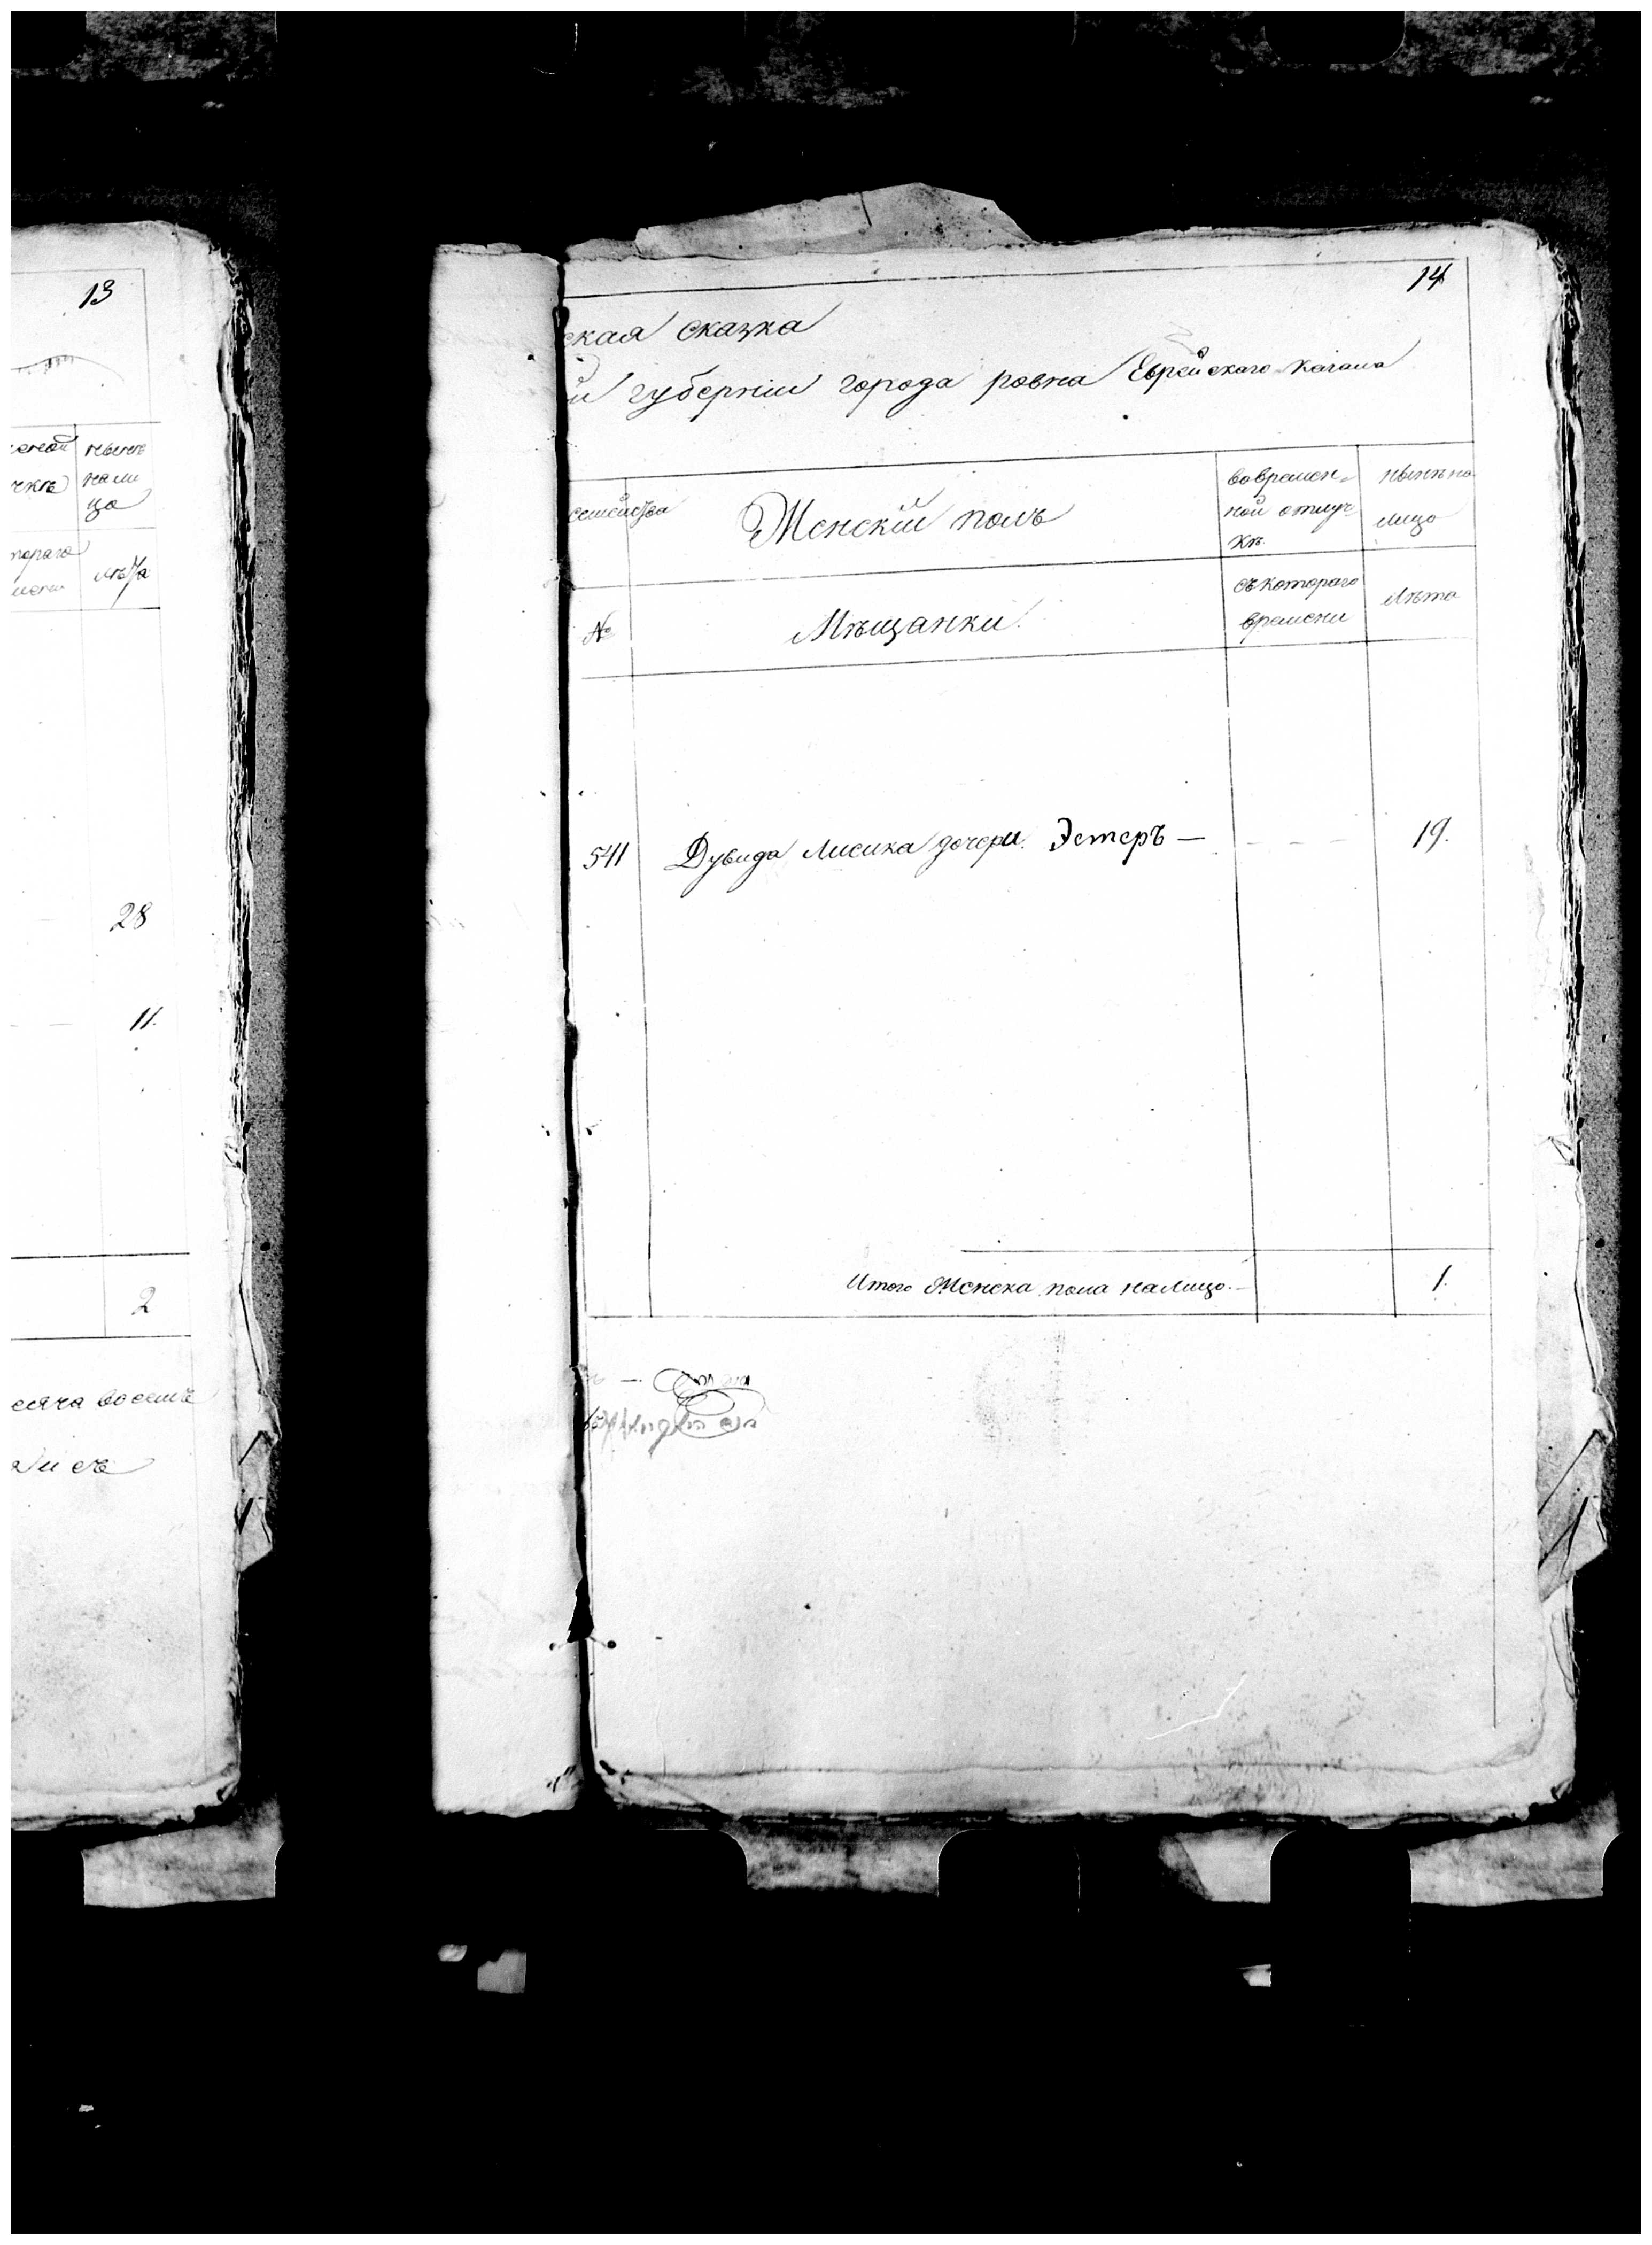 13
ныне
нали
цо
лѣта
28
11.
2
сяча восемь
14
ская сказка
й губерніи города ровна Еврейскаго Кагала
семейства
Женскій полъ
во времен-
ной отлуч-
кѣ.
нынѣ на
лицо
№
Мѣщанки.
съ котораго
времени
Лѣта
541 Дувида Лисика дочери. Эстеръ — 19.
Итого Женска пола налицо. — 1.